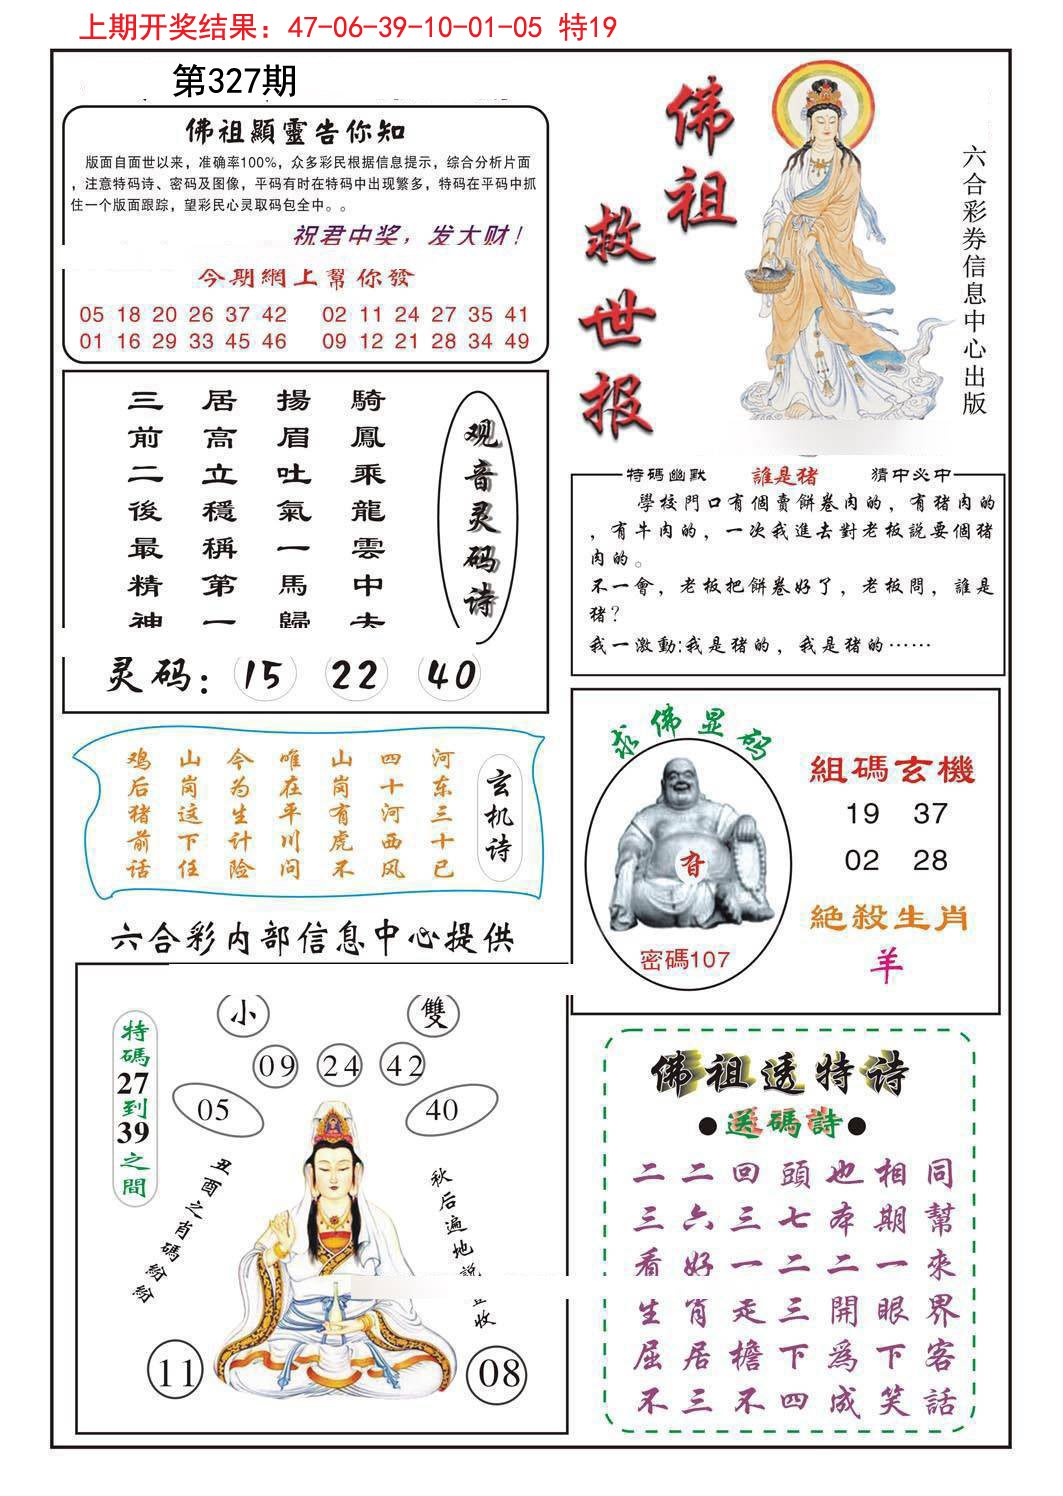 上期开奖结果：47-06-39-10-01-05 特19
第327期
佛祖顯靈告你知
版面自面世以来，准确率100%，众多彩民根据信息提示，综合分析片面
，注意特码诗、密码及图像，平码有时在特码中出现繁多，特码在平码中抓
住一个版面跟踪，望彩民心灵取码包全中。。
祝君中奖，发大财！
今期網上幫你發
05 18 20 26 37 42 02 11 24 27 35 41
01 16 29 33 45 46 09 12 21 28 34 49
佛祖救世报
六合彩券信息中心出版
观音灵码诗
騎鳳乘龍雲中夫
揚眉吐氣一馬歸
居高立穩稱第一
三前二後最精神
灵码：15 22 40
特碼幽默 誰是猪 猜中必中
學校門口有個賣餅卷肉的，有猪肉的
，有牛肉的，一次我進去對老板説要個猪
肉的。
不一會，老板把餅卷好了，老板問，誰是
猪？
我一激動:我是猪的，我是猪的……
玄机诗
河东三十已
四十河西风
山岗有虎不
唯在平川问
今为生计险
山岗这下任
鸡后猪前话
求佛显码
密碼107
組碼玄機
19 37
02 28
絶殺生肖
羊
六合彩内部信息中心提供
特碼27到39之間
小 雙
09 24 42
05 40
丑酉之肖碼紛紛
秋后遍地説
收
11 08
佛祖透特诗
●送碼詩●
二二回頭也相同
三六三七本期幫
看好一二二一來
生肖走三開眼界
屈居檐下爲下客
不三不四成笑話